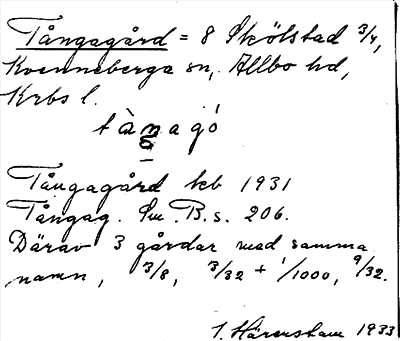 Tångagård = 8 Skölstad 3/4,
Kvenneberga sn, Allbo hd,
Krbs l.
tåŋagó
Tångagård kb 1931
Tångag. Sm. B.s. 206.
Därav 3 gårdar med samma
namn, 3/8, 3/32 + 1/1000, 9/32.
I. Härenstam 1933